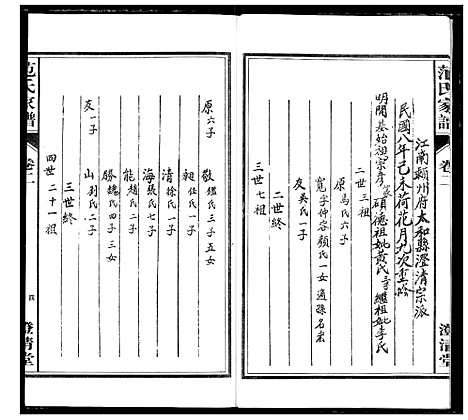 范氏家譜
卷二
澄清堂
江南潁州府太和縣澄清宗派
民國八年己未荷花月九次重修
明開基始祖宗彥 碩德祖妣黃氏 繼祖妣李氏
二世三祖
原 馬氏六子
寬 字仲容顏氏一女適孫名宏
友 吳氏一子
二世終
三世七祖
范氏家譜
卷二
四
澄清堂
原六子
敬 繼氏三子五女
昶 任氏一子
清 徐氏一子
海 張氏七子
能 趙氏二子
勝 魏氏四子三女
友一子
山 劉氏二子
三世終
四世二十一祖